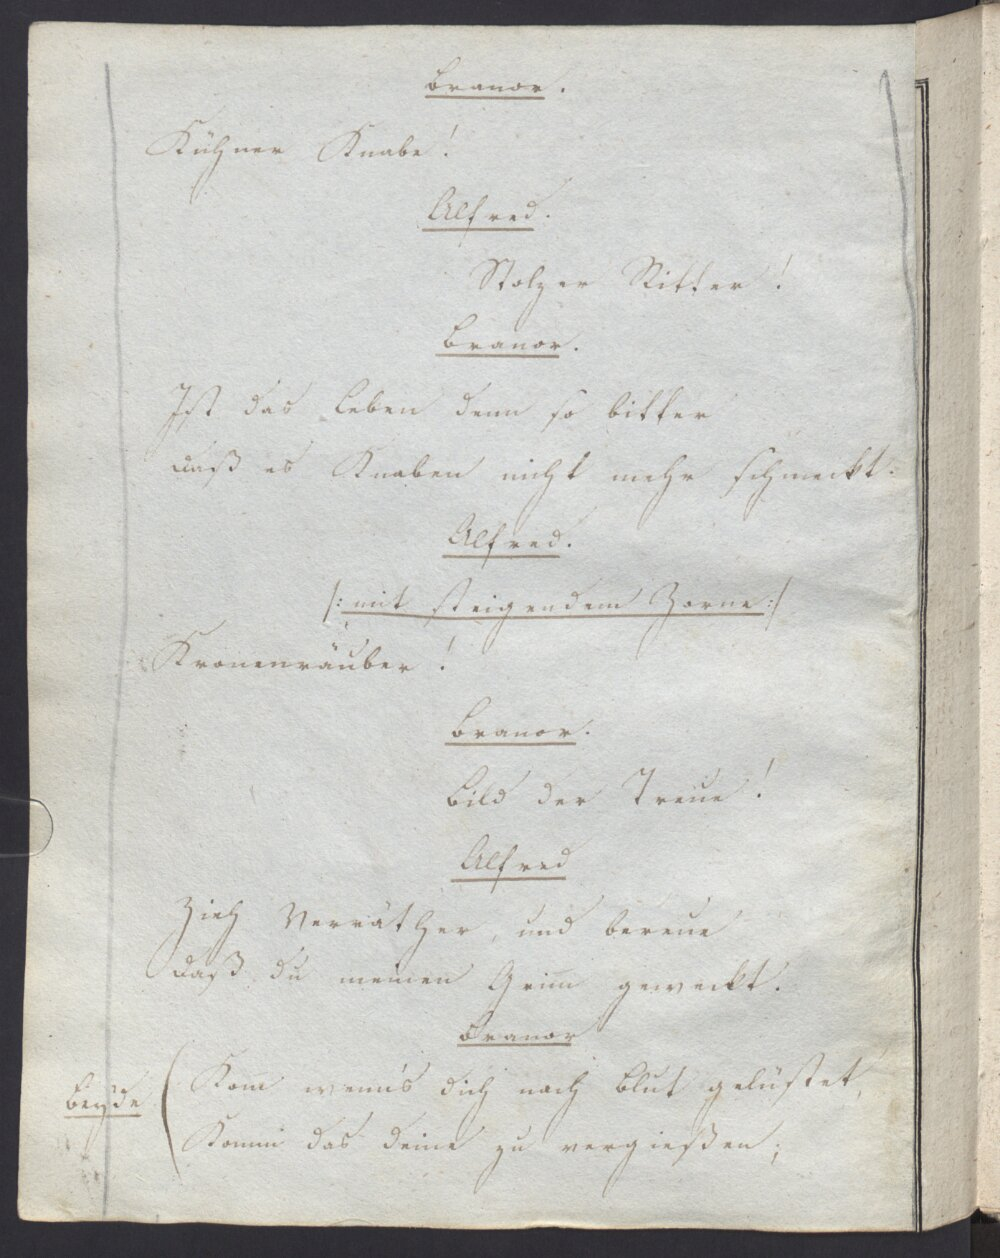 Branor.
Kühner Knabe!
Alfred.
Stolzer Ritter!
Branor.
Ist das Leben denn so bitter
daß es Knaben nicht mehr schmeckt.
Alfred.
/: mit steigendem Zorne :/
Kronenräuber!
Branor.
Bild der Treue!
Alfred
Zieh Verräther, und bereue
daß du meinen Grim̄ geweckt.
Branor
Kom̄ wenn's dich nach Blut gelüstet,
beyde
Komm das deine zu vergießen;